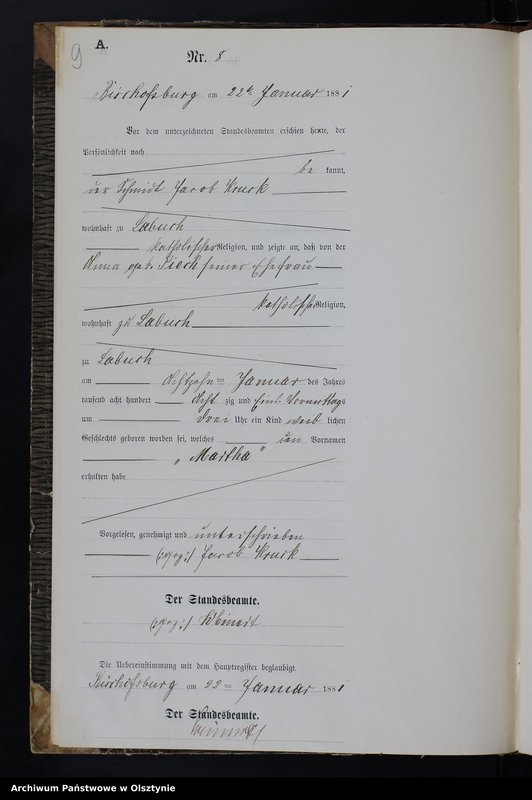 9
A.
Nr. 8
Bischofsburg am 22ten Januar 1881
Vor dem unterzeichneten Standesbeamten erschien heute, der
Persönlichkeit nach
be kannt,
der Schmidt Jacob
wohnhaft zu Labuch
katholischer Religion, und zeigte an, daß von der
Anna geb. seiner Ehefrau
katholischer Religion,
wohnhaft zu Labuch
zu Labuch
am Achtzehnten Januar des Jahres
tausend acht hundert Acht zig und Eins Vormittags
um drei Uhr ein Kind weib lichen
Geschlechts geboren worden sei, welches den Vornamen
„Martha"
erhalten habe
Vorgelesen, genehmigt und unterschrieben
(gez:) Jacob
Der Standesbeamte.
(gez:)
Die Uebereinstimmung mit dem Hauptregister beglaubigt.
Bischofsburg am 22ten Januar 1881
Der Standesbeamte.
Archiwum Państwowe w Olsztynie